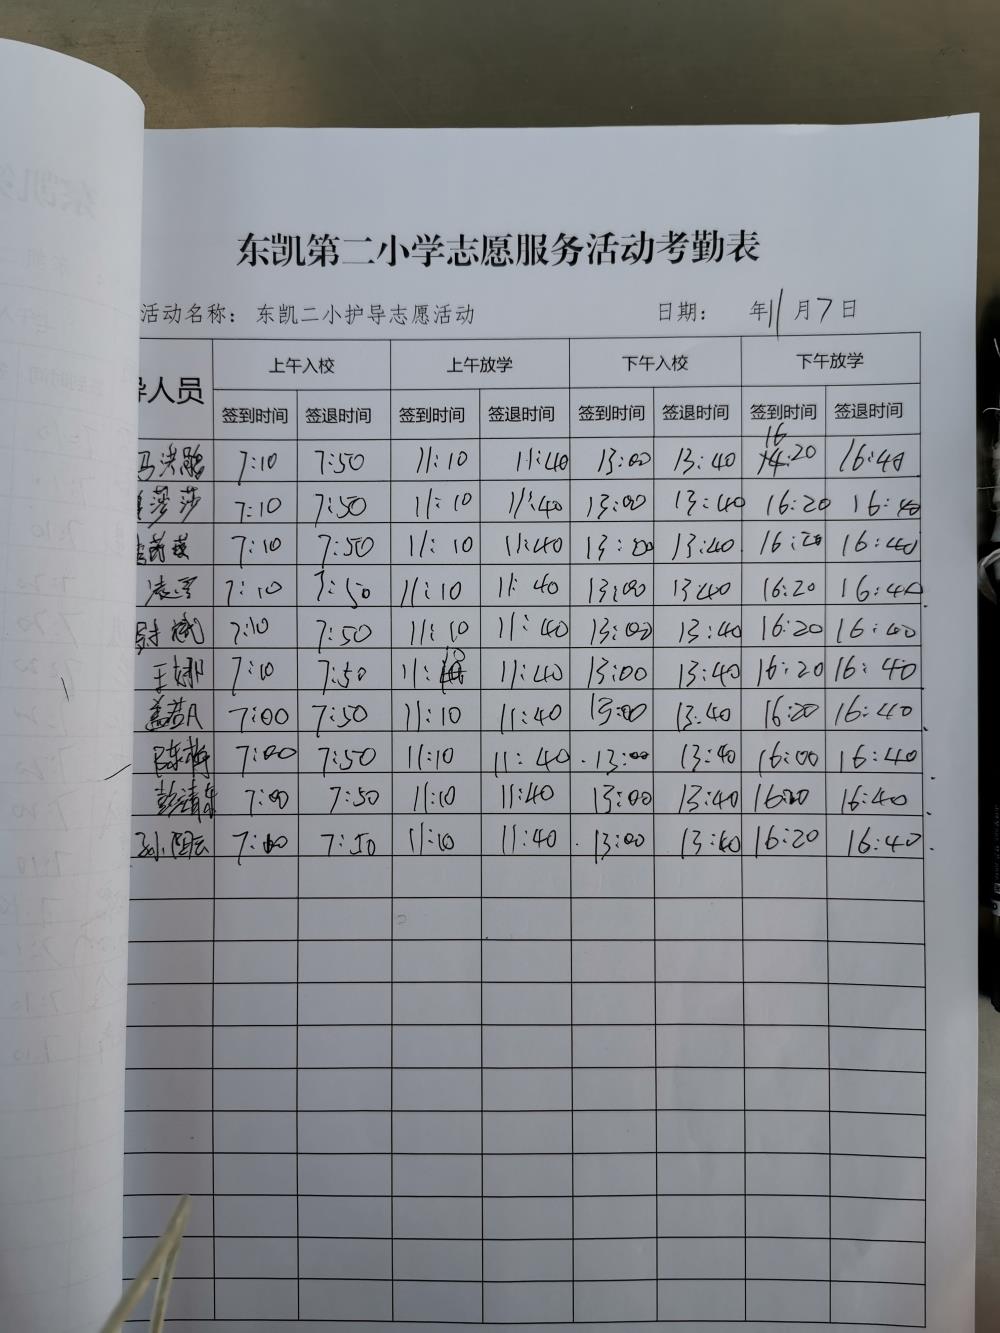 东凯第二小学志愿服务活动考勤表
活动名称：东凯二小护导志愿活动 日期： 年11月7日
导人员 上午入校 上午放学 下午入校 下午放学
签到时间 签退时间 签到时间 签退时间 签到时间 签退时间 签到时间 签退时间
7:10 7:50 11:10 11:40 13:00 13:40 16:20 16:40
莎莎 7:10 7:50 11:10 11:40 13:00 13:40 16:20 16:40
7:10 7:50 11:10 11:40 13:00 13:40 16:20 16:40
7:10 7:50 11:10 11:40 13:00 13:40 16:20 16:40
7:10 7:50 11:10 11:40 13:00 13:40 16:20 16:40
王娜 7:10 7:50 11:10 11:40 13:00 13:40 16:20 16:40
7:00 7:50 11:10 11:40 13:00 13:40 16:20 16:40
陈梅 7:00 7:50 11:10 11:40 13:00 13:40 16:00 16:40
彭清 7:00 7:50 11:10 11:40 13:00 13:40 16:20 16:40
孙 7:00 7:50 11:10 11:40 13:00 13:40 16:20 16:40